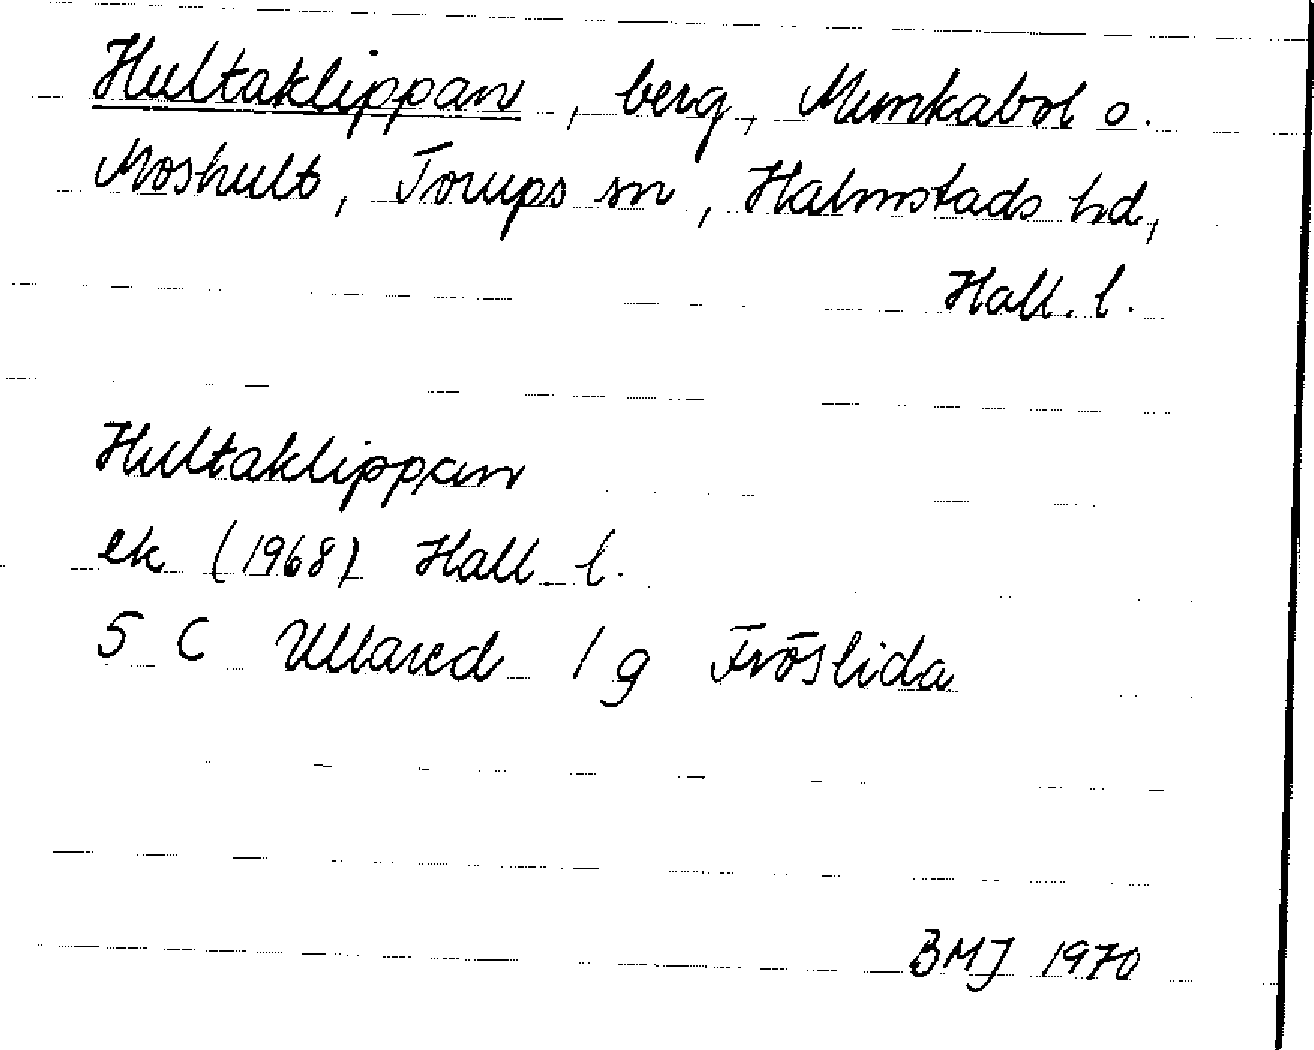 Hultaklippan, berg, Munkabol o.
Moshult, Torups sn, Halmstads hd,
Hall. l.
Hultaklippan
ek (1968) Hall. l.
5 C Ullared 1 g Fröslida
BMJ 1970